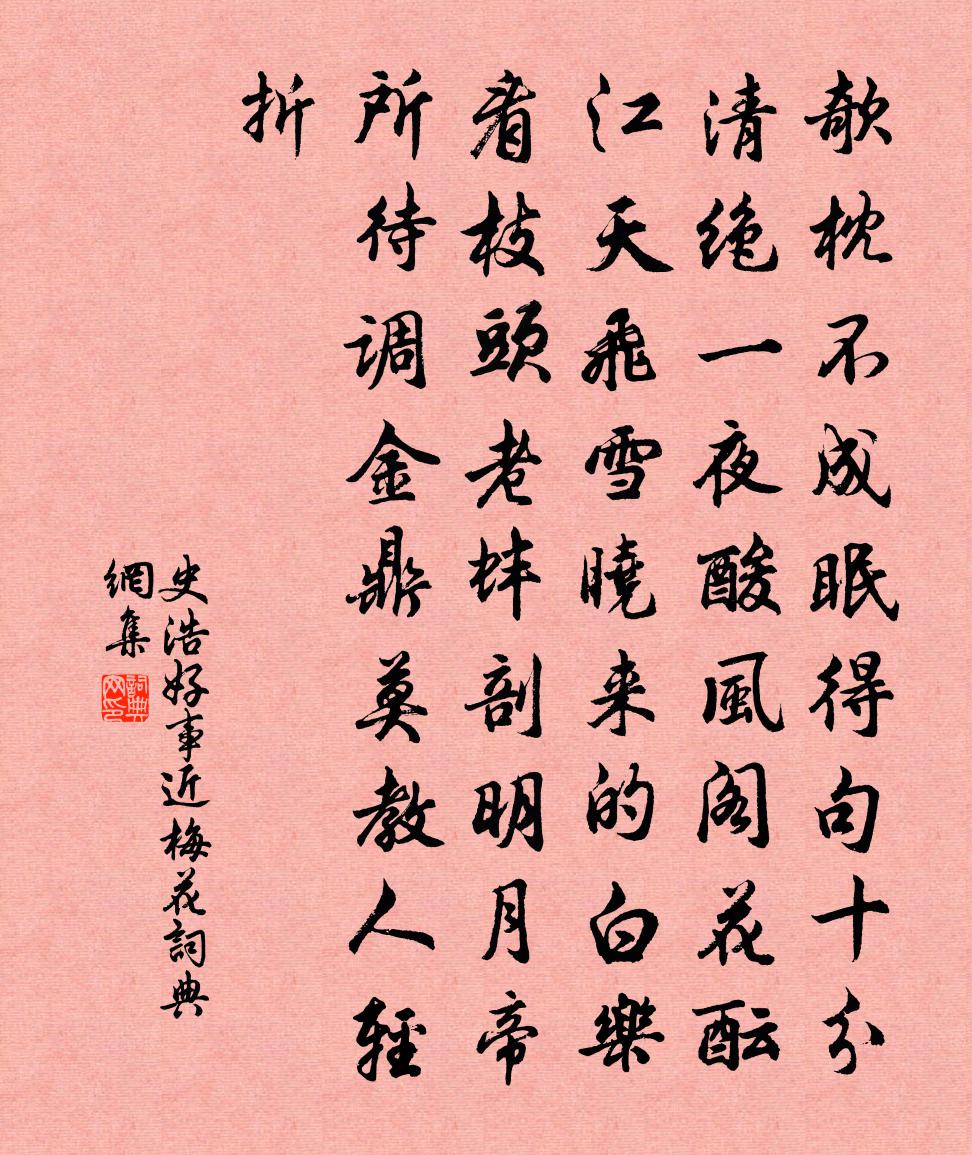 欹枕不成眠得句十分
清绝一夜酸風阁花酝
江天飛雪曉来的白樂
看枝頭老蚌剖明月帝
所待调金鼎莫教人輕
折
史浩好事近梅花詞典
網集
詞典
网印